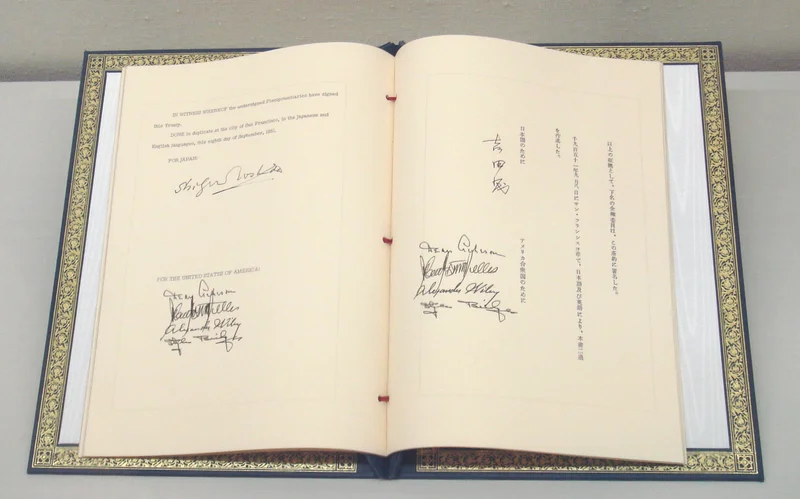 IN WITNESS WHEREOF the undersigned Plenipotentiaries have signed
this Treaty.
DONE in duplicate at the city of San Francisco, in the Japanese and
English languages, this eighth day of September, 1951.
FOR JAPAN:
Shigeru Yoshida
FOR THE UNITED STATES OF AMERICA:
Dean Acheson
Alexander Wiley
以上の証拠として、下名の全権委員は、この条約に署名した。
千九百五十一年九月八日にサン・フランシスコ市で、日本語及び英語により、本書二通
を作成した。
日本国のために
吉田茂
アメリカ合衆国のために
Dean Acheson
Alexander Wiley